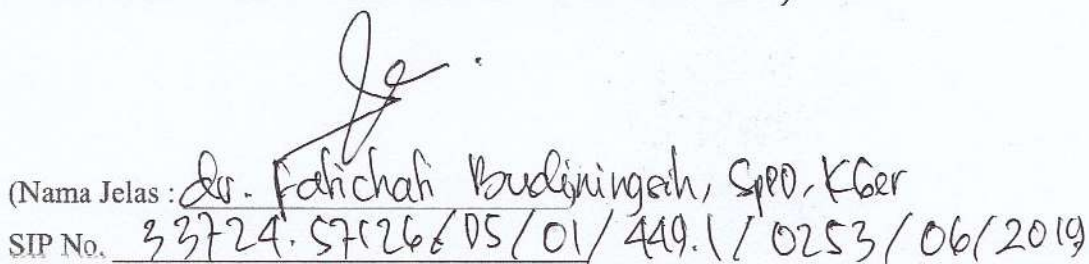 (Nama Jelas : dr. Fatichati Budiningsih, SpPD, KGer
SIP No. 33724.57126/DS/01/449.1/0253/06/2019